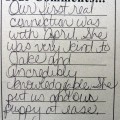 Our first real
connection was
with April. She
was very kind to
Jake and
incredibly
knowledgeable. She
put us and our
puppy at ease.